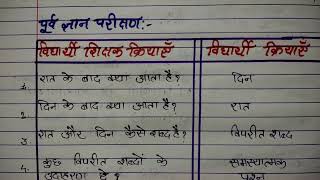 पूर्व ज्ञान परीक्षण:-
विद्यार्थी शिक्षक क्रियाएँ
विद्यार्थी क्रियाएँ
1. रात के बाद क्या आता है?
दिन
2. दिन के बाद क्या आता है?
रात
3. रात और दिन कैसे शब्द है?
विपरीत शब्द
4. कुछ विपरीत शब्दों के
समस्यात्मक
उदाहरण दो?
प्रश्न